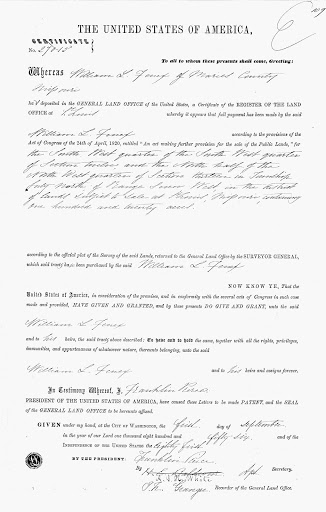 THE UNITED STATES OF AMERICA,
CERTIFICATE
No.
To all to whom these presents shall come, Greeting:
Whereas William L. of Maries County
Missouri
ha deposited in the GENERAL LAND OFFICE of the United States, a Certificate of the REGISTER OF THE LAND
OFFICE at whereby it appears that full payment has been made by the said
William L. according to the provisions of the
Act of Congress of the 24th of April, 1820, entitled "An act making further provision for the sale of the Public Lands," for
the South West quarter of the South West quarter
of Section twelve and the West half of the
North West quarter of Section thirteen in Township
North of Range Seven West in the district
of lands Subject to Sale at Missouri containing
one hundred and twenty acres
according to the official plat of the Survey of the said Lands, returned to the General Land Office by the SURVEYOR GENERAL,
which said tract has been purchased by the said William L.
NOW KNOW YE, That the
United States of America, in consideration of the premises, and in conformity with the several acts of Congress in such case
made and provided, HAVE GIVEN AND GRANTED, and by these presents DO GIVE AND GRANT, unto the said
William L.
and to his heirs, the said tract above described: To have and to hold the same, together with all the rights, privileges,
immunities, and appurtenances of whatsoever nature, thereunto belonging, unto the said
William L.
and to his heirs and assigns forever.
In Testimony Whereof, I, Franklin Pierce
PRESIDENT OF THE UNITED STATES OF AMERICA, have caused these Letters to be made PATENT, and the SEAL
of the GENERAL LAND OFFICE to be hereunto affixed.
GIVEN under my hand, at the CITY OF WASHINGTON, the first day of September
in the year of our Lord one thousand eight hundred and fifty six, and of the
INDEPENDENCE OF THE UNITED STATES the eighty first
BY THE PRESIDENT: Franklin Pierce
By Secretary.
Granger Recorder of the General Land Office.